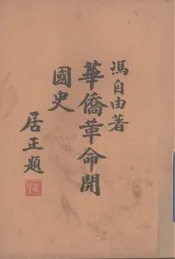 馮自由著
華僑革命開
國史
居正題